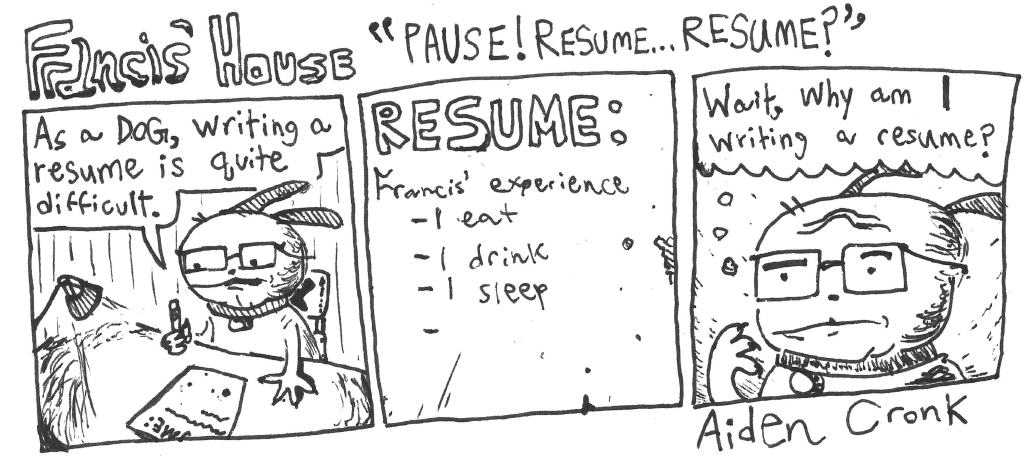 Francis' House
"PAUSE! RESUME... RESUME?"
As a DOG, writing a
resume is quite
difficult.
RESUME:
Francis' experience
- I eat
- I drink
- I sleep
-
Wait, why am I
writing a resume?
Aiden Cronk